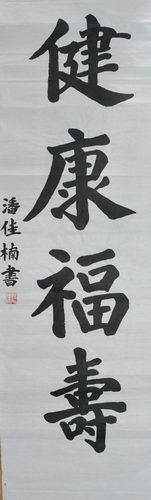 健康福壽
潘佳楠書